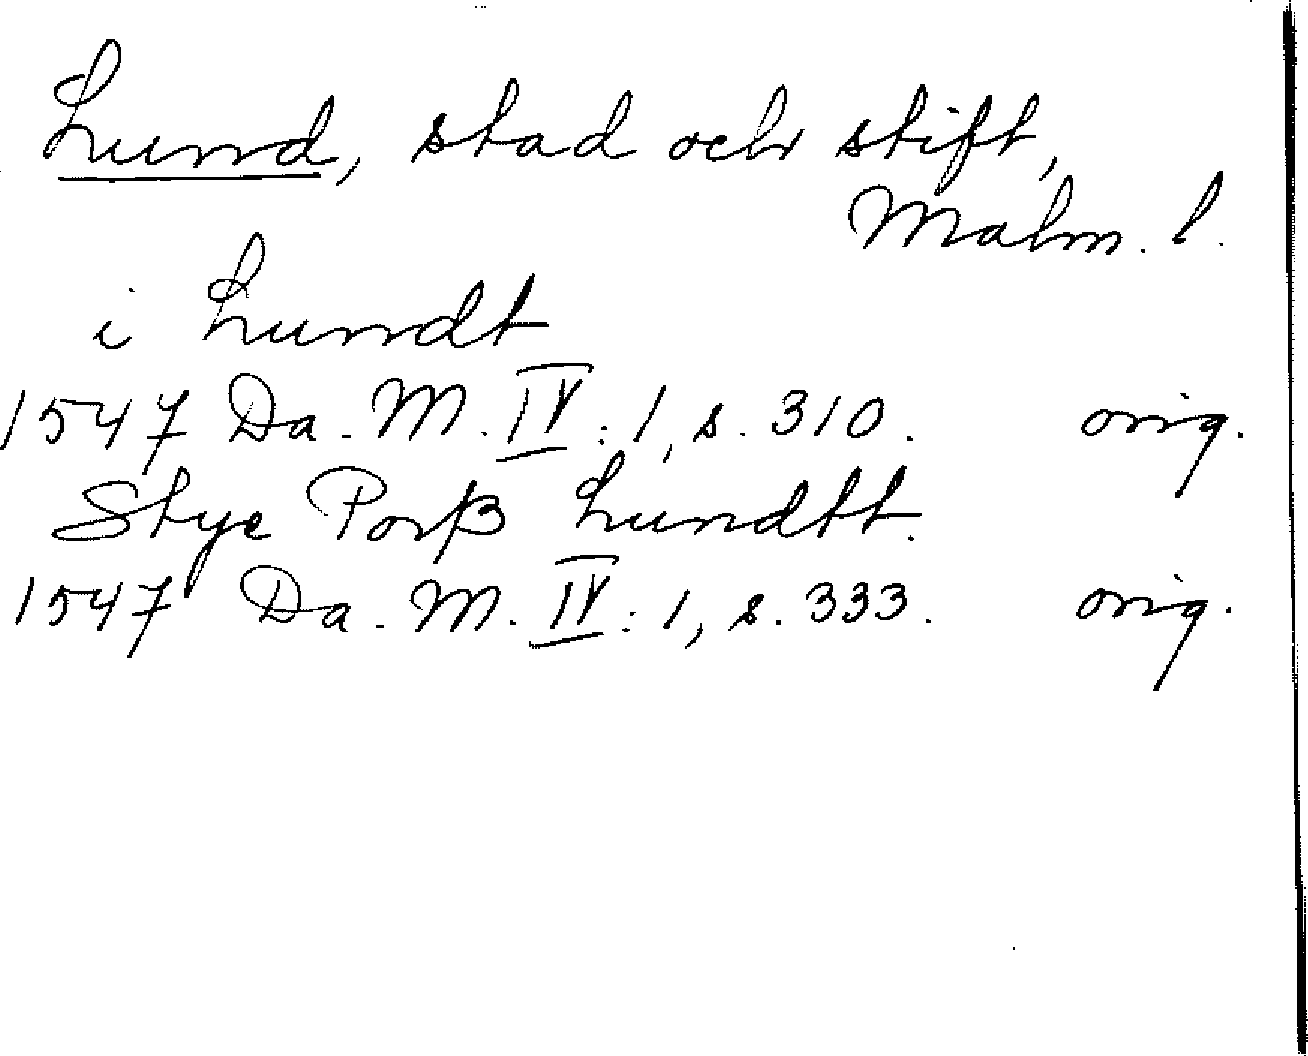 Lund, stad och stift,
Malm. l.
i Lundt
1547 Da. M. IV: 1, s. 310. orig.
Stye Porß Lundtt.
1547 Da. M. IV: 1, s. 333. orig.